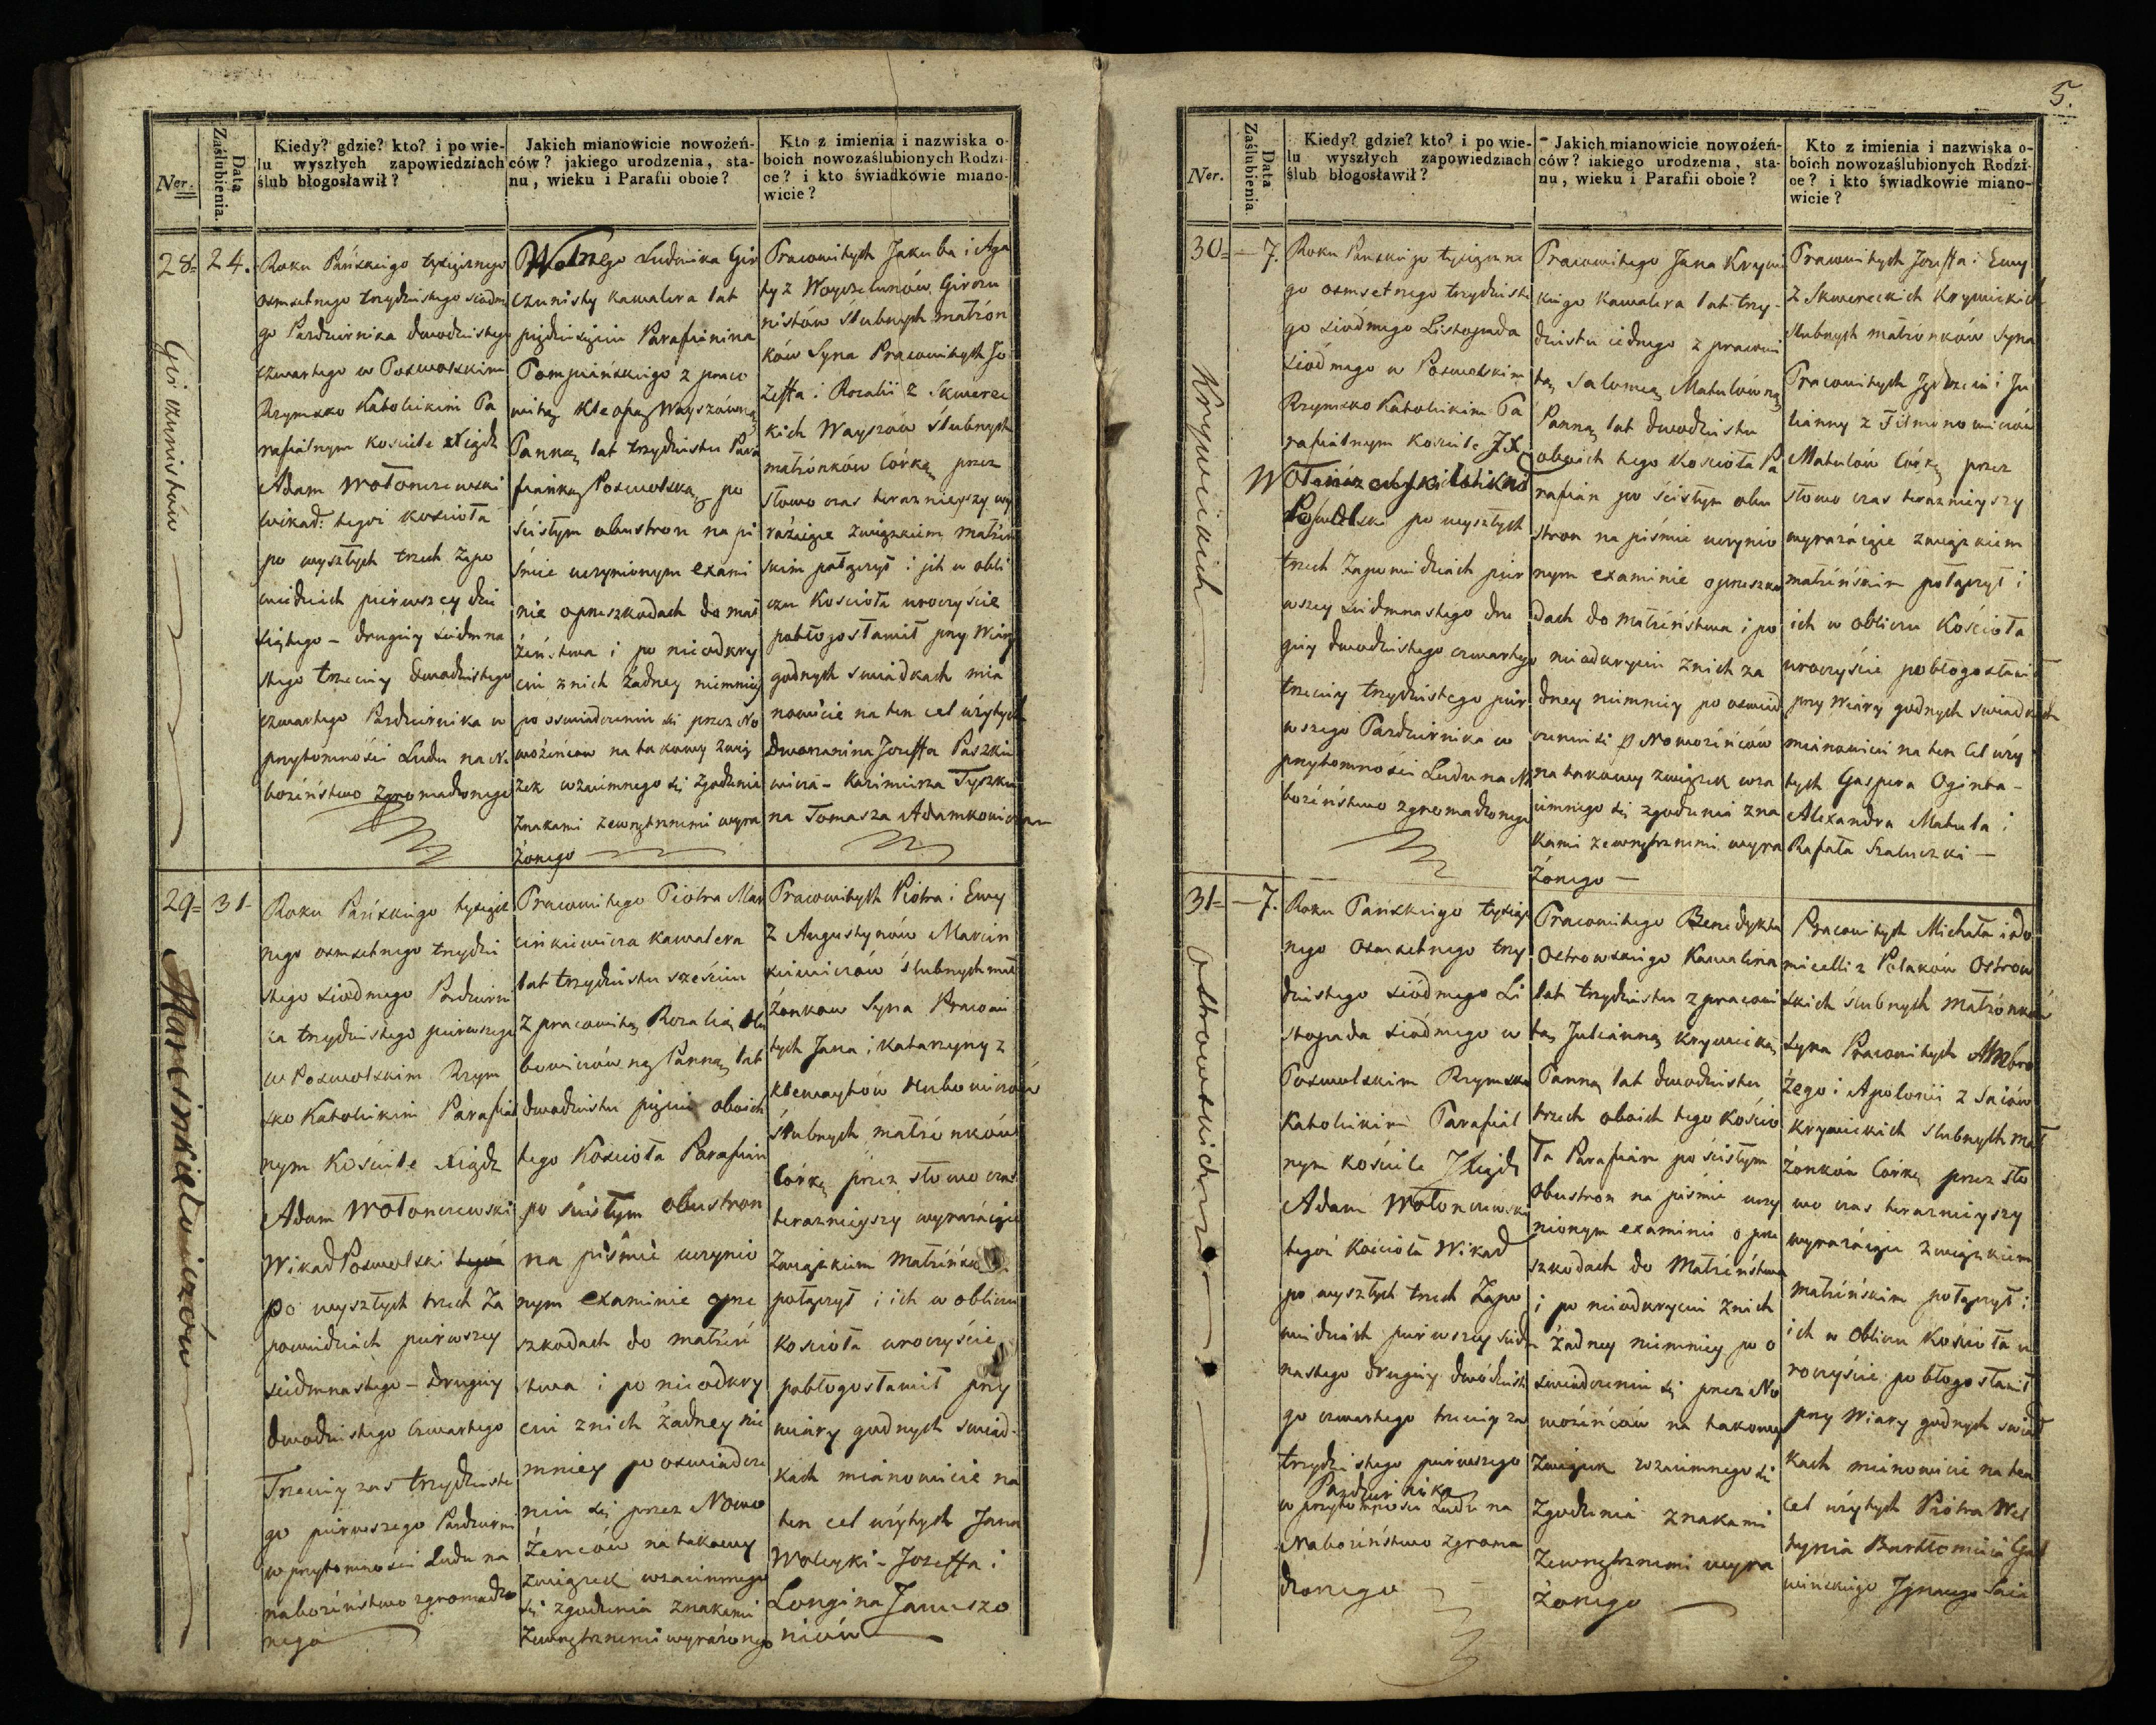 Ner.
Data Zaślubienia.
Kiedy? gdzie? kto? i po wie-
lu wyszłych zapowiedziach
ślub błogosławił?
Jakich mianowicie nowożeń-
ców? jakiego urodzenia, sta-
nu, wieku i Parafii oboie?
Kto z imienia i nazwiska o-
boich nowozaślubionych Rodzi-
ce? i kto świadkowie miano-
wicie?
28
24.
Girczunistów
Roku Pańskiego tysiącznego
osmsetnego trzydziestego siodme
go Pazdziernika dwudziestego
czwartego w Poswolskim
Rzymsko Katolickim Pa
rafialnym kościele Xiądz
Adam Wołonczewski
Wikad: tegoż kościoła
po wyszłych trzech zapo
wiedziach pierwszey dzie
siątego - drugiey siedmna
stego trzeciey dwudziestego
czwartego Pazdziernika w
przytomności Ludu na Na
bożeństwo zgromadzonego
Wolnego Ludwika Gir
czunisty kawalera lat
pięćdziesięciu Parafianina
Pompiańskiego z praco
witą Kleofą Wayszówną
Panną lat trzydziestu Para
fianką Poswolską po
ścisłym obustron na pi
śmie uczynionym exami
nie o przeszkodach do mał
żeństwa i po nieodkry
ciu z nich żadney niemniey
po oswiadczeniu się przez No
wożeńcow na takowy zwią
zek wzaiemnego się zgodzenia
znakami zewnętrznemi wyra
żonego
Pracowitych Jakuba i Aga
ty z Woyszelunów Girczu
nistów ślubnych małżon
ków Syna Pracowitych Jo
zeffa i Rozalii z Skwerec
kich Wayszów ślubnych
małżonków Córką przez
słowo czas teraznieyszy wy
rażaiące związkiem małżeń
skim połączył i ich w obli
czu Kościoła uroczyście
pobłogosławił przy Wiary
godnych swiadkach mia
nowicie na ten cel użytych
Dworzanina Jozeffa Paszkie
wicza - Kazimierza Tyszku
na Tomasza Adamkowicza
29
31
Marcinkiewiczów
Roku Pańskiego tysiącz
nego osmsetnego trzydzie
stego siodmego Pazdzierni
ka trzydziestego pierwszego
w Poswolskim Rzym
sko Katolickim Parafial
nym Kościele Xiądz
Adam Wołonczewski
Wikad Poswolski tegoż
po wyszłych trzech Za
powiedziach pierwszey
siedmnastego - Drugiey
dwudziestego Czwartego
Trzeciey zas trzydzieste
go pierwszego Pazdzierni
w przytomności Ludu na
nabożeństwo zgromadzo
nego
Pracowitego Piotra Mar
cinkiewicza Kawalera
lat trzydziestu sześciu
z pracowitą Rozalią Hu
bowiczówną Panną lat
dwudziestu pięciu oboich
tego Kościoła Parafian
po ścisłym obustron
na piśmie uczynio
nym examinie o prze
szkodach do małżeń
stwa i po nieodkry
ciu z nich żadney nie
mniey po oswiadcze
niu się przez Nowo
żeńców na takowy
związek wzaiemnego
się zgodzenia znakami
zewnętrznemi wyrażonego
Pracowitych Piotra i Ewy
z Augustynów Marcin
kiewiczów ślubnych mał
żonkow Syna Pracowi
tych Jana i Katarzyny z
Klewaytów Hubowiczów
ślubnych małżonków
Córką przez słowo czas
teraznieyszy wyrażaiące
Związkiem Małżeńsk
połączył i ich w obliczu
Kościoła uroczyście
pobłogosławił przy
wiary godnych swiad-
kach mianowicie na
ten cel użytych Jana
Wolcyki - Jozeffa i
Longina Januszo
niców
5.
Ner.
Data Zaślubienia
Kiedy? gdzie? kto? i po wie-
lu wyszłych zapowiedziach
ślub błogosławił?
Jakich mianowicie nowożeń-
ców? iakiego urodzenia, sta-
nu, wieku i Parafii oboie?
Kto z imienia i nazwiska o-
boich nowozaślubionych Rodzi-
ce? i kto świadkowie miano-
wicie?
30
7.
Krywickich
Roku Pańskiego tysiączne
go osmsetnego trzydzieste
go siodmego Listopada
siodmego w Poswolskim
Rzymsko Katolickim Pa
rafialnym kościele JX.
Wołonczewski Wikad
Poswolski po wyszłych
trzech Zapowiedziach pier
wszey siedmnastego dru
giey dwudziestego czwartego
trzeciey trzydziestego pier
wszego Pazdziernika w
przytomności Ludu na Na
bożeństwo zgromadzonego
Pracowitego Jana Krywi
kiego Kawalera lat trzy-
dziestu iednego z pracowi
tą Salomeą Matulówną
Panną lat dwudziestu
oboich tego Kościoła Pa
rafian po ścisłym obu
stron na piśmie uczynio
nym examinie o przeszko
dach do małżeństwa i po
nieodkryciu z nich ża
dney niemniey po oswiad
czeniu się p Nowożeńców
na takowy związek wza
iemnego się zgodzenia zna
kami zewnętrznemi wyra
żonego
Pracowitych Jozeffa i Ewy
z Skwereckich Krywickich
slubnych małżonków Syna
Pracowitych Jędrzeia i Ju
lianny z Filmonowiczów
Matulów Córką przez
słowo czas teraznieyszy
wyrażaiące związkiem
małżeńskim połączył i
ich w obliczu Kościoła
uroczyście pobłogosławił
przy Wiary godnych swiadkach
mianowicie na ten Cel uży
tych Gaspera Oginta -
Alexandra Matula i
Rafała Szaluczki
31
7.
Ostrowskich
Roku Pańskiego tysiącz
nego osmsetnego trzy
dziestego siódmego Li
stopada siodmego w
Poswolskim Rzymsko
Katolickim Parafial
nym kościele JXiądz
Adam Wołonczewski
tegoż Kościoła Wikad
po wyszłych trzech Zapo
wiedziach pierwszey siedm
nastego drugiey dwudzieste
go czwartego trzeciey zas
trzydziestego pierwszego
Pazdziernika
w przytomności Ludu na
Nabożeństwo zgroma
dzonego
Pracowitego Benedykta
Ostrowskiego Kawalera
lat trzydziestu z pracowi
tą Julianną Krywicką
Panną lat dwudziestu
trzech oboich tego Kościo
ła Parafian po ścisłym
obustron na piśmie uczy
nionym examinie o prze
szkodach do Małżeństwa
i po nieodkryciu z nich
żadney niemniey po o
świadczeniu się przez No
wożeńców na takowy
Związek wzaiemnego się
zgodzenia znakami
Zewnętrznemi wyra
żonego
Pracowitych Michała i Do
micelli z Polaków Ostrow
skich slubnych małżonków
Syna Pracowitych Ambro
żego i Apolonii z Saiów
Krywickich slubnych mał
żonków Córką przez sło
wo czas teraznieyszy
wyrażaiące związkiem
małżeńskim połączył i
ich w Obliczu Kościoła u
roczyście pobłogosławił
przy Wiary godnych swiad
kach mianowicie na ten
cel użytych Piotra Wel
tynia Bartłomieia Gud
wińskiego Ignacego Saia